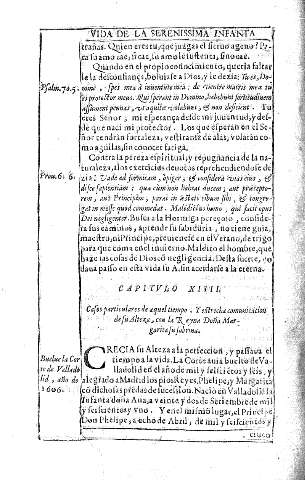 VIDA DE LA SERENISSIMA INFANTA
trañas. Quien eres tu, que juzgas el sieruo ageno? Pe-
ca su amo cae,
Quando en el propio conocimiento, queria faltar
le la desconfiança, boluiase a Dios, y le dezia: Tu es, Do-
Psalm. 70.5. mine, spes mea à iuuentute mea: de ventre matris meæ tu
es protector meus. Qui sperant in Domino, habebunt fortitudinem
assument pennas, vt aquilæ volabunt, & non deficient. Tu
eres Señor, mi esperança desde mi juuentud, y des-
de que naci mi protector. Los que esperan en el Se-
ñor tendràn fortaleza, vestiranse de alas, volaràn co
mo aguilas, sin conocer fatiga.
Contra la pereza espiritual, y repugnancia de la na-
turaleza, a los exercicios deuotos reprehendiendose de
Prou. 6. 6. zia: Vade ad formicam, ò piger, & considera vias eius, &
disce sapientiam: quæ cum non habeat ducem, nec præcepto-
rem, nec Principem, parat in æstate cibum sibi, & congre-
gat in messe quod commedat. Maledictus homo, qui facit opus
Dei negligenter. Busca a la Hormiga perezoso, considera
sus caminos, aprende su sabiduria, no tiene guia,
maestro, ni Principe, preuiene en el Verano, de trigo
para que coma en el Inuierno. Maldito el hombre, que
haze las cosas de Dios con negligencia. Desta suerte, no
daua passo en esta vida sin encaminarse a la eterna.
CAPITVLO XIIII.
Cosas particulares de aquel tiempo. Y estrecha comunicacion
de su Alteza, con la Reyna Doña Mar-
garita su sobrina.
Buelue la Cor
te de Vallado
lid, año de
1606.
CRECIA su Alteza a la perfeccion, y passaua el
tiempo a la vida. La Corte auia buelto de Va-
lladolid en el año de mil y seiscientos y seis, y
alegrado a Madrid los pios Reyes, Phelipe, y Margarita
cõ dichosas prendas de sucession. Naciò en Valladolid la
Infanta doña Ana, a veinte y dos de Setiembre de mil
y seiscientos y vno. Y en el mismo lugar, el Principe
Don Phelipe, a ocho de Abril, de mil y seiscientos y
cinco